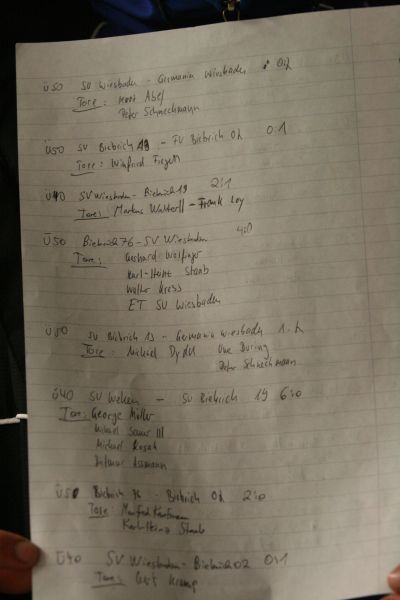 Ü50 SV Wiesbaden - Germania Wiesbaden 0:2
Tore: Horst Abel
Peter Schneckmann
Ü50 SV Biebrich 19 - FV Biebrich 02 0:1
Tore: Winfried
Ü40 SV Wiesbaden - Biebrich 19 2:1
Tore: Markus - Frank Ley
Ü50 Biebrich 76 - SV Wiesbaden 4:0
Tore: Gerhard Wolfinger
Karl-Heinz Staab
Walter Kress
ET SV Wiesbaden
Ü50 SV Biebrich 19 - Germania Wiesbaden 1:2
Tore: Michael Uwe Düring
Peter Schneckmann
Ü40 SV Wehen - SV Biebrich 19 6:0
Tore: George Müller
Michael III
Michael
Dietmar Assmann
Ü50 Biebrich 76 - Biebrich 02 2:0
Tore: Manfred Kaufmann
Karl-Heinz Staab
Ü40 SV Wiesbaden - Biebrich 02 0:1
Tore: Gert